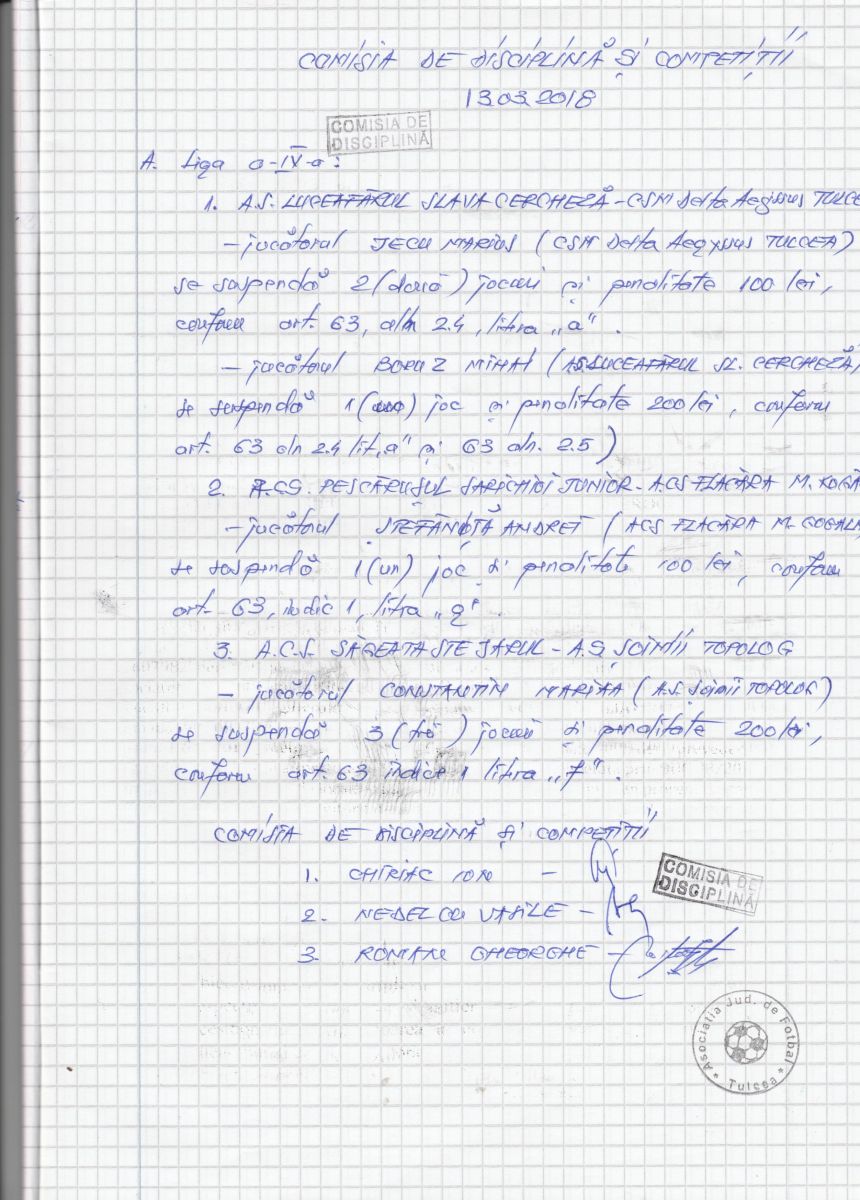 COMISIA DE DISCIPLINĂ ȘI COMPETIȚII
13.03.2018
COMISIA DE
DISCIPLINĂ
A. Liga a-IV-a:
1. A.S. LUCEAFĂRUL SLAVA CERCHEZĂ - CSM Delta Aegyssus TULCEA
- jucătorul JECU MARIUS (CSM Delta Aegyssus TULCEA)
se suspendă 2 (două) jocuri și penalitate 100 lei,
conform art. 63, aln 2.4, litra „a".
- jucătorul BORUZ MIHAI (AS LUCEAFĂRUL SL. CERCHEZĂ,
se suspendă 1 (un) joc și penalitate 200 lei, conform
art. 63 aln 2.4 lit „a" și 63 aln. 2.5)
2. A.C.S. PESCĂRUȘUL SARICHIOI JUNIOR - ACS FLACĂRA M. KOGĂ
- jucătorul ȘTEFĂNIȚĂ ANDREI (ACS FLACĂRA M. COGALN
se suspendă 1 (un) joc și penalitate 100 lei, conform
art. 63, indic 1, litra „g".
3. A.C.S. SĂGEATA STEJARUL - A.S ȘOIMII TOPOLOG
- jucătorul CONSTANTIN MARIAN (A.S. Șoimii TOPOLOG)
se suspendă 3 (trei) jocuri și penalitate 200 lei,
conform art. 63 indice 1 litra „f".
COMISIA DE DISCIPLINĂ ȘI COMPETIȚII
1. CHIRIAC ION -
2. NEDELCU VASILE -
3. ROMAN GHEORGHE -
COMISIA DE
DISCIPLINĂ
Asociatia Jud. de Fotbal
* Tulcea *